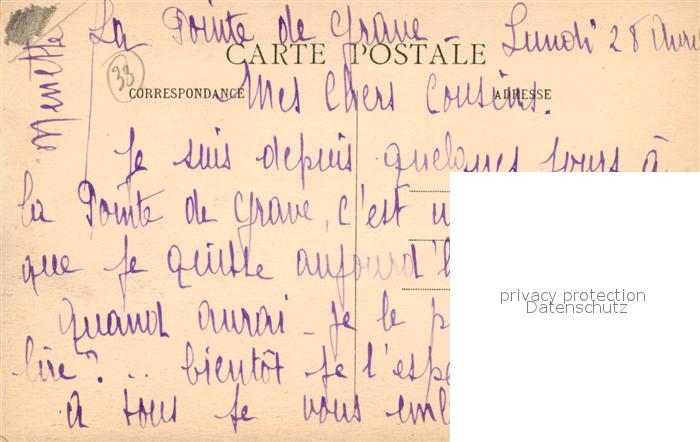 La Pointe de Grave - Lundi 28 Avril
CARTE POSTALE
33
CORRESPONDANCE ADRESSE
Mes Chers Cousins.
Je suis depuis quelques jours à
la Pointe de Grave, c'est u
que je quitte aujourd'h
quand aurai-je le p
lire? .. bientôt je l'espè
à tous je vous emb
privacy protection
Datenschutz